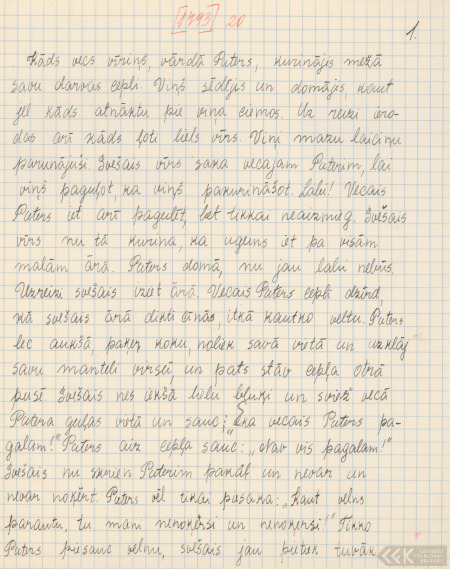 [1793] 20
1.
Kāds vecs vīriņš, vārdā Puters, kurinājis mežā
savu darvas cepli. Viņš sēdējis un domājis, kaut
jel kāds atnāktu pie viņa ciemos. Uz reizi iero-
das arī kāds ļoti liels vīrs. Viņi mazu laiciņu
parunājuši. Svešais vīrs saka vecajam Puterim, lai
viņš paguļot, ka viņš pakurināšot. Labi! Vecais
Puters iet arī pagulēt, bet tikkai neaizmieg. Svešais
vīrs nu tā kurina, ka uguns iet pa visām
malām ārā. Puters domā, nu jau labi nebūs.
Uzreizi svešais iziet ārā. Vecais Puters ceplī dzird,
kā svešais ārā dikti cīnās, itkā kautko veltu. Puters
lec aukšā, paķer koku, noliek savā vietā un uzklāj
savu mānteli virsū, un pats stāv cepļa otrā
pusē. Svešais nes iekšā lielu bluķi un sviež vecā
Putera guļas vietā un sauc: „ka vecais Puters pa-
galam!" Puters aiz cepļa sauc: „Nav vis pagalam!"
Svešais nu skrien Puterim pakaļ un nevar un
nevar noķert. Puters vēl tikai piesaka: „Kaut velns
parautu, tu mani nenoķersi un nenoķersi!" Tikko
Puters piesauc velnu, svešais jau pietiek tuvāk